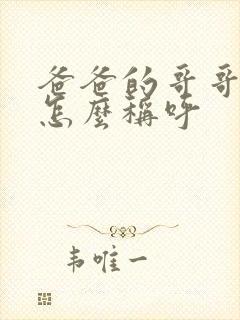 爸爸的哥哥
怎麼稱呼
韦唯一